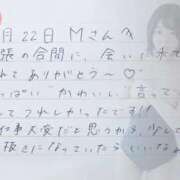 月22日 Mさんへ
張の合間に、会いに来て
れてありがとう〜♡
ぱい"かわいい"言って
てうれしかったです!!
仕事大変だと思うから、少しで
抜きになっていたらいいな